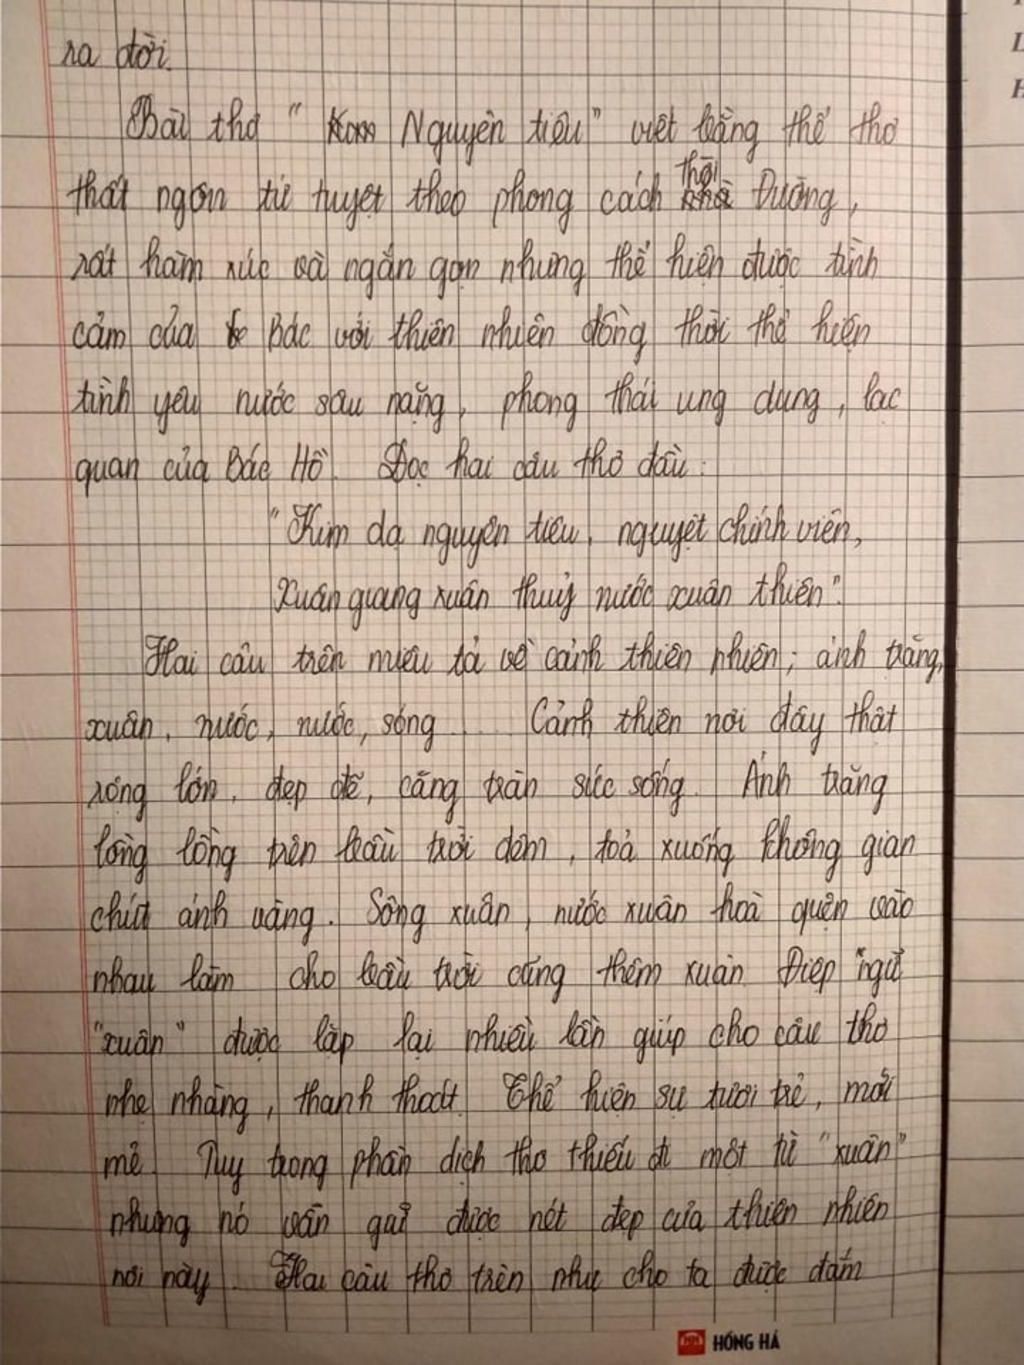 ra đời.
Bài thơ " Nguyên tiêu" viết bằng thể thơ
thất ngôn tứ tuyệt theo phong cách thời Đường,
rất hàm xúc và ngắn gọn nhưng thể hiện được tình
cảm của Bác với thiên nhiên đồng thời thể hiện
tình yêu nước sâu nặng, phong thái ung dung, lạc
quan của Bác Hồ. Đọc hai câu thơ đầu:
"Kim dạ nguyên tiêu, nguyệt chính viên,
Xuân giang xuân thuỷ nước xuân thiên".
Hai câu trên miêu tả về cảnh thiên nhiên; ánh trăng,
xuân, nước, nước, sóng ... Cảnh thiên nơi đây thật
rộng lớn, đẹp đẽ, căng tràn sức sống. Ánh trăng
lồng lồng trên bầu trời đêm, toả xuống không gian
chút ánh vàng. Sông xuân, nước xuân hoà quện vào
nhau làm cho bầu trời cũng thêm xuân. Điệp "ngữ
"xuân" được lặp lại nhiều lần giúp cho câu thơ
nhẹ nhàng, thanh thoát. Thể hiện sự tươi trẻ, mới
mẻ. Tuy trong phần dịch thơ thiếu đi một từ "xuân"
nhưng nó vẫn giữ được nét đẹp của thiên nhiên
nơi này. Hai câu thơ trên như cho ta được đắm
HỒNG HÀ